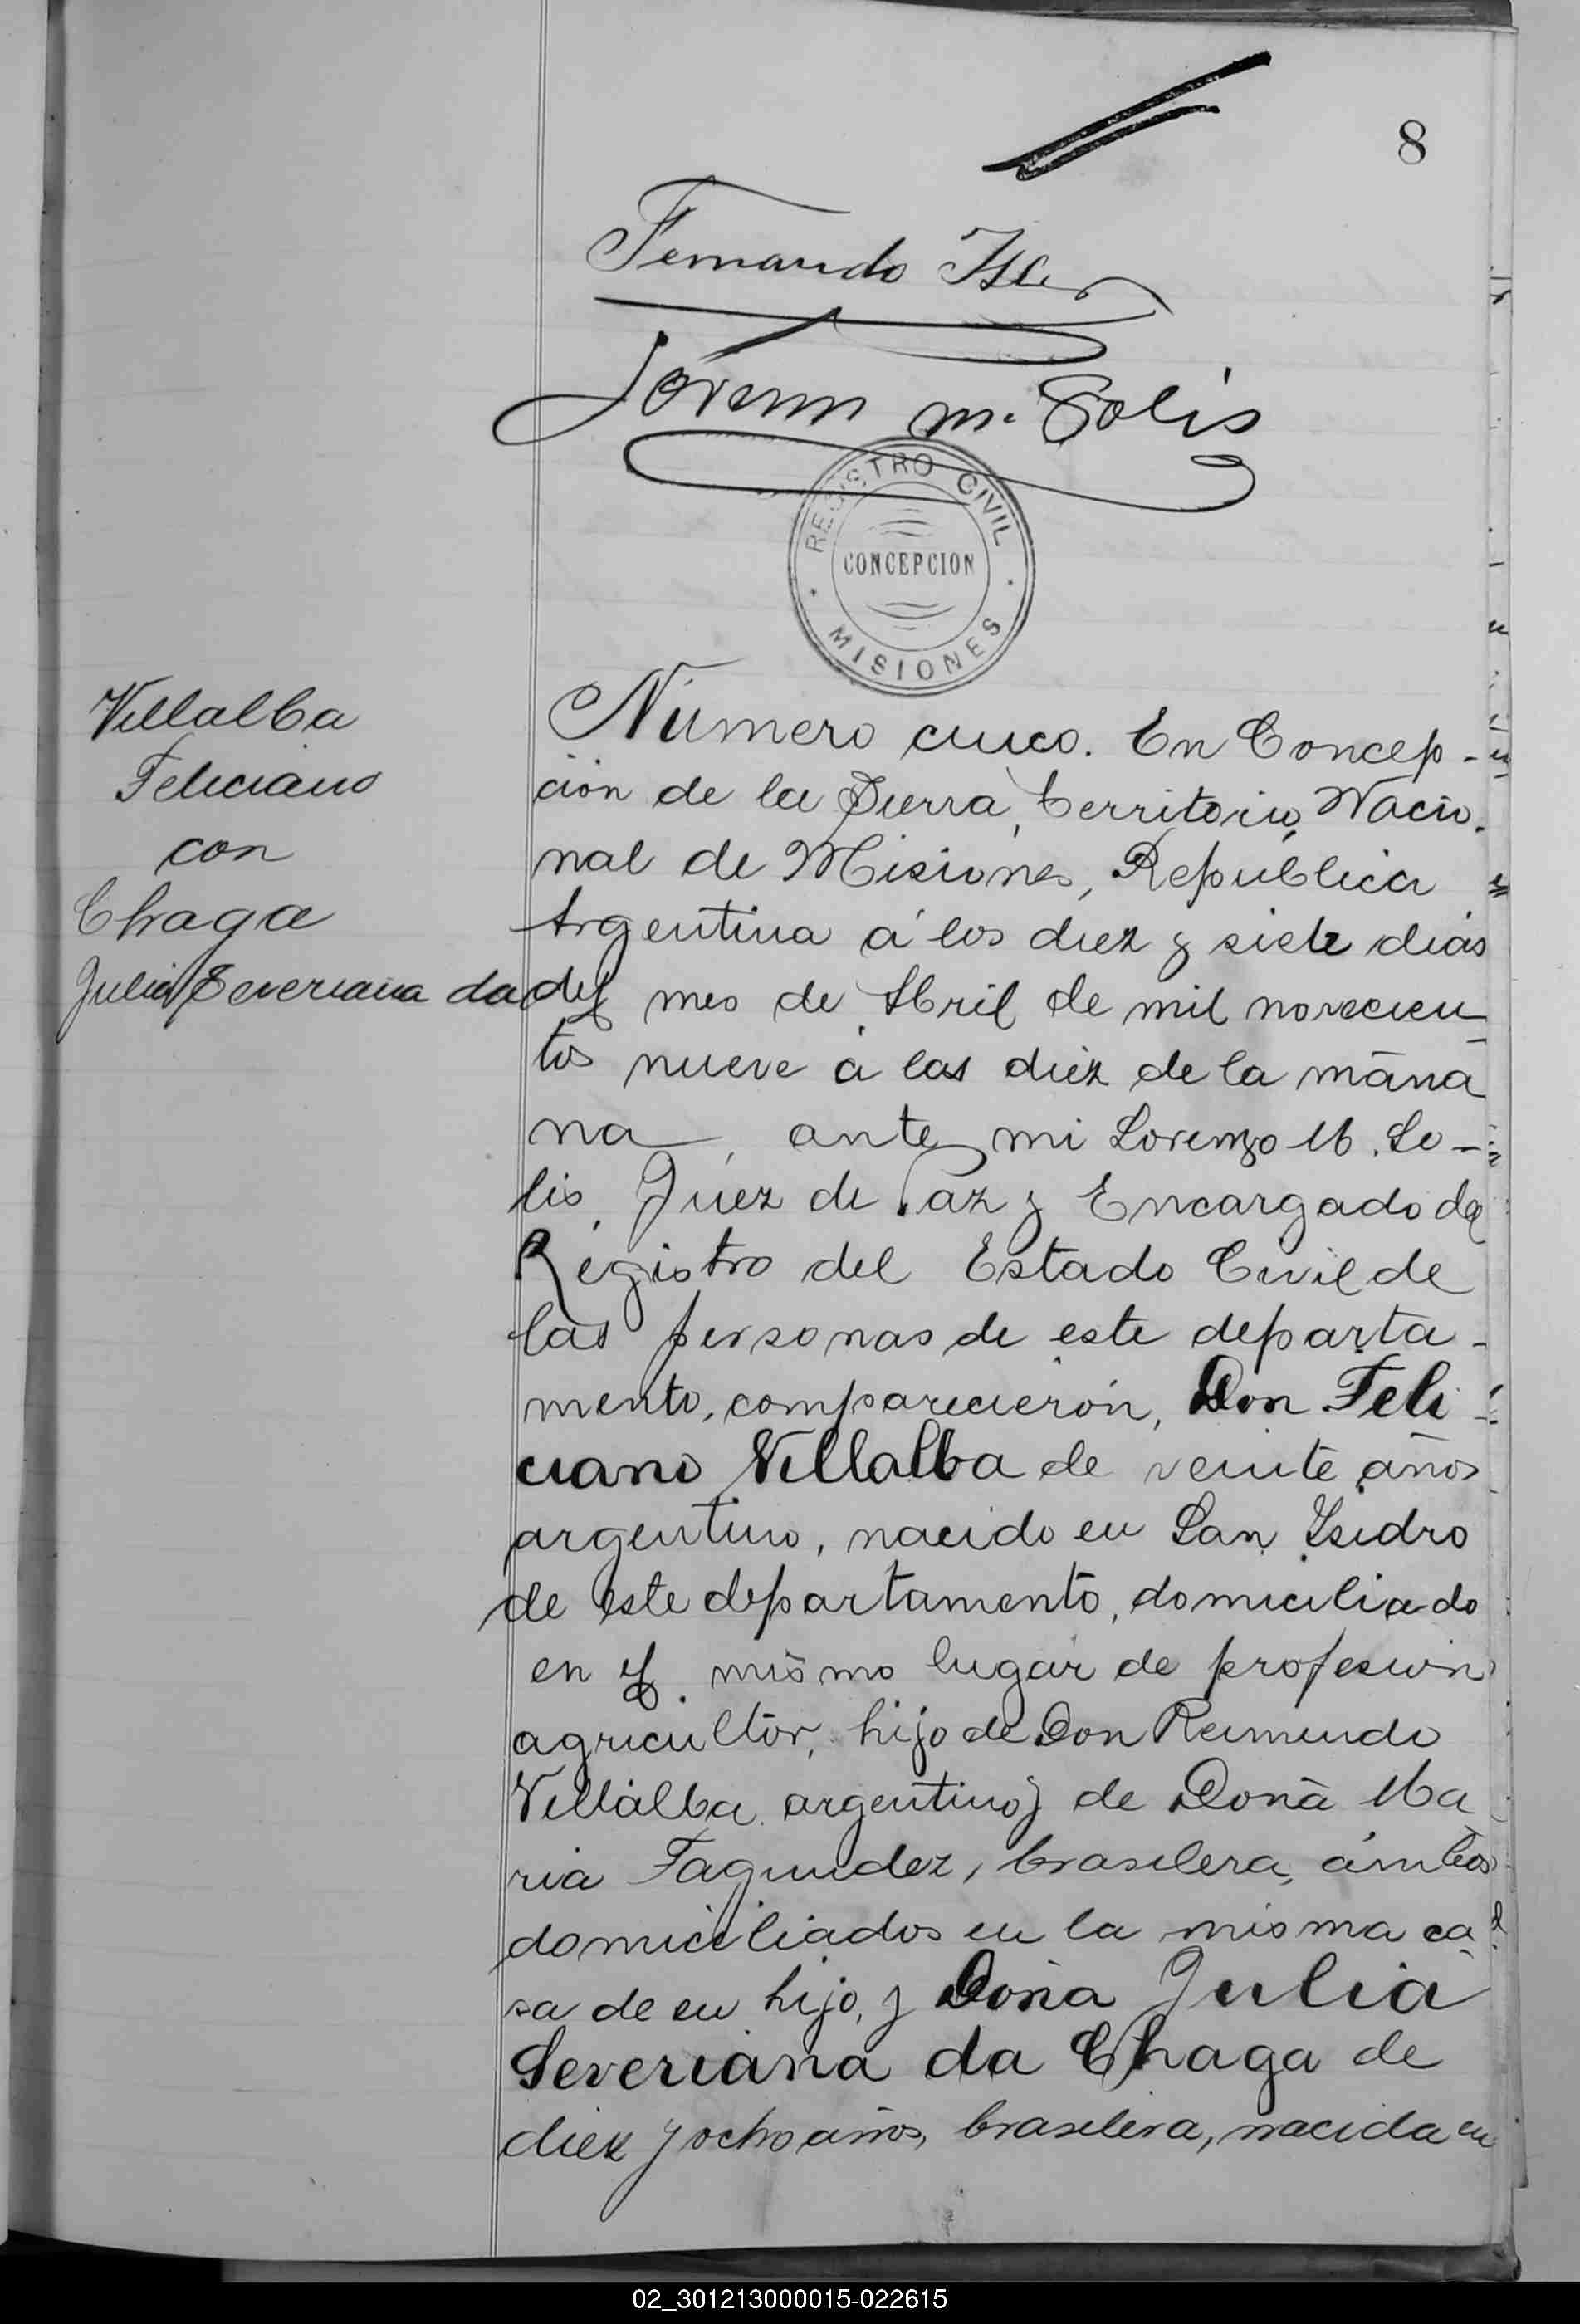 8
Fernando
Lorenzo M. Solis
REGISTRO CIVIL
CONCEPCION
MISIONES
Villalba
Feliciano
con
Chaga
Julia Severiana da
Número cinco. En Concep-
ción de la Sierra, Territorio Nacio-
nal de Misiones, República
Argentina á los diez y siete dias
del mes de Abril de mil novecien
tos nueve á las diez de la maña
na, ante mi Lorenzo M. So-
lis, Juez de Paz y Encargado del
Registro del Estado Civil de
las personas de este departa-
mento, comparecieron, Don Feli-
ciano Villalba de veinte años
argentino, nacido en San Isidro
de este departamento, domiciliado
en el mismo lugar de profesion
agricultor, hijo de Don Reimundo
Villalba argentino y de Doña Ma
ria Fagundez, brasilera, ámbos
domiciliados en la misma ca
sa de su hijo, y Doña Julia
Severiana da Chaga de
diez y ocho años, brasilera, nacida en
02_301213000015-022615